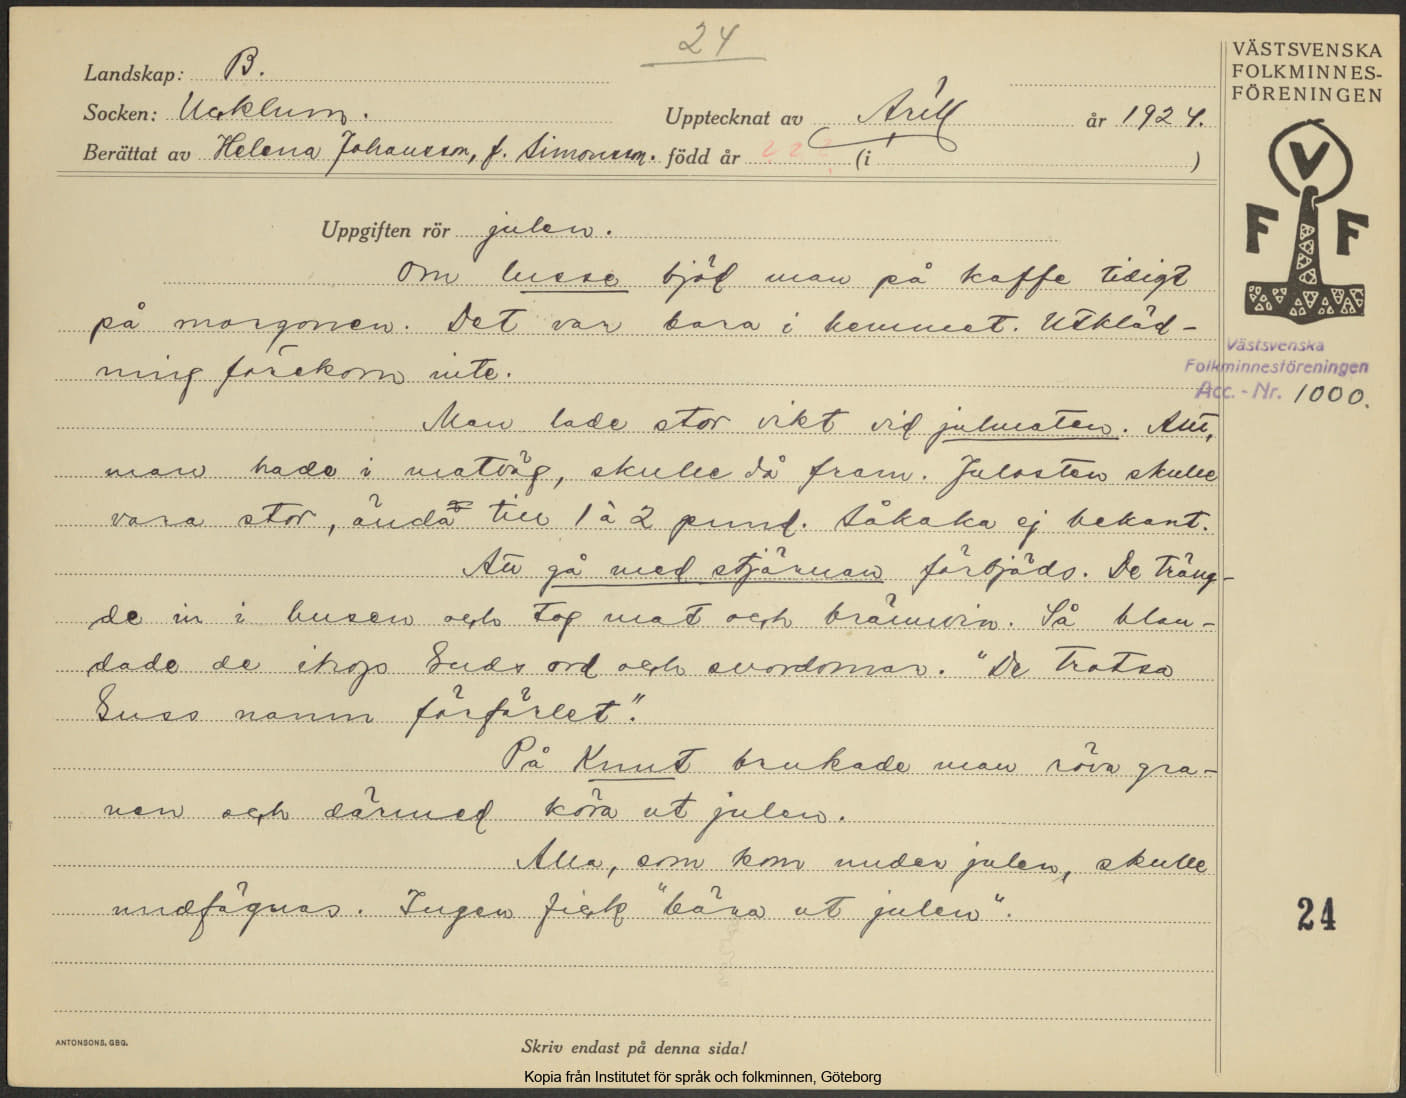 24
Landskap: B.
Socken: Ucklum.
Upptecknat av Arill år 1924.
Berättat av Helena Johansson, f. Simonsson. född år ? ? ? (i )
VÄSTSVENSKA
FOLKMINNES-
FÖRENINGEN
V
F F
Uppgiften rör julen.
Om lusse bjöd man på kaffe tidigt
på morgonen. Det var bara i hemmet. Utkläd-
ning förekom inte.
Västsvenska
Folkminnesföreningen
Acc. - Nr. 1000.
Man lade stor vikt vid julmaten. Allt,
man hade i matväg, skulle då fram. Julosten skulle
vara stor, ända till 1 à 2 pund. Såkaka ej bekant.
Att gå med stjärnan förbjöds. De träng-
de in i husen och tog mat och brännvin. Så blan-
dade de ihop Guds ord och svordomar. "De trotsa
Guss namn förfärlet".
På Knut brukade man röva gra-
nen och därmed köra ut julen.
Alla, som kom under julen, skulle
undfägnas. Ingen fick "bära ut julen".
24
ANTONSONS, GBG.
Skriv endast på denna sida!
Kopia från Institutet för språk och folkminnen, Göteborg